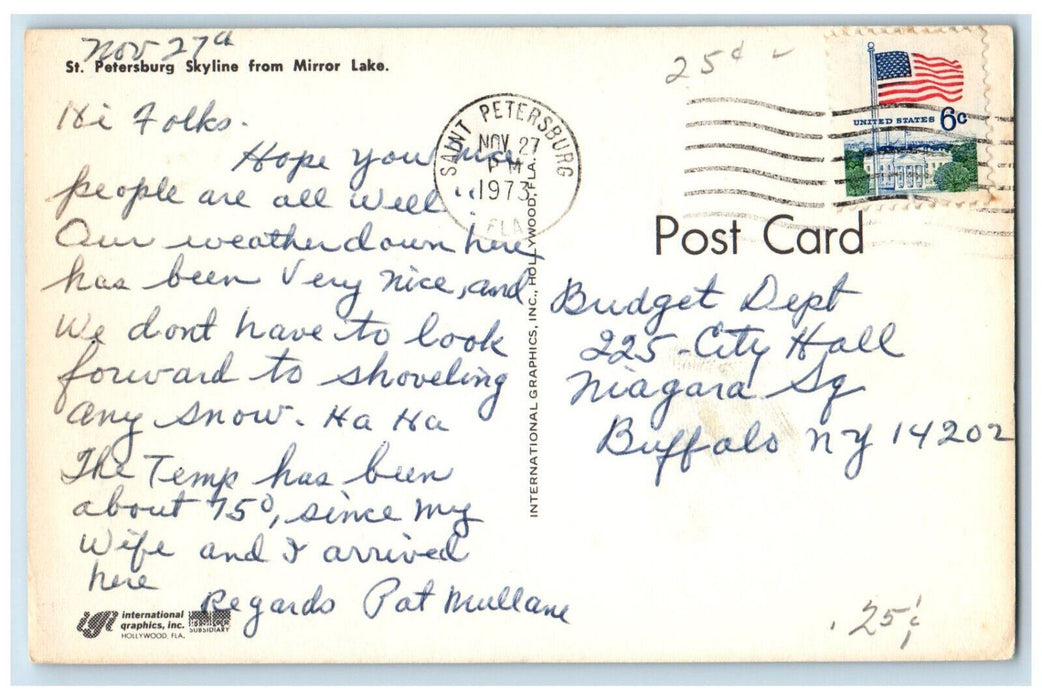 Nov 27th
St. Petersburg Skyline from Mirror Lake.
Hi Folks.
Hope you nice
people are all well.
Our weather down here
has been Very nice, and
We dont have to look
forward to shoveling
any snow. Ha Ha
The Temp has been
about 75°, since my
Wife and I arrived
here
Regards Pat Mullane
international
graphics, inc.
HOLLYWOOD, FLA.
SUBSIDIARY
INTERNATIONAL GRAPHICS, INC., HOLLYWOOD, FLA.
SAINT PETERSBURG
NOV 27
PM
1973
FLA
25¢
UNITED STATES 6c
Post Card
Budget Dept
225 - City Hall
Niagara Sq
Buffalo NY 14202
.25¢